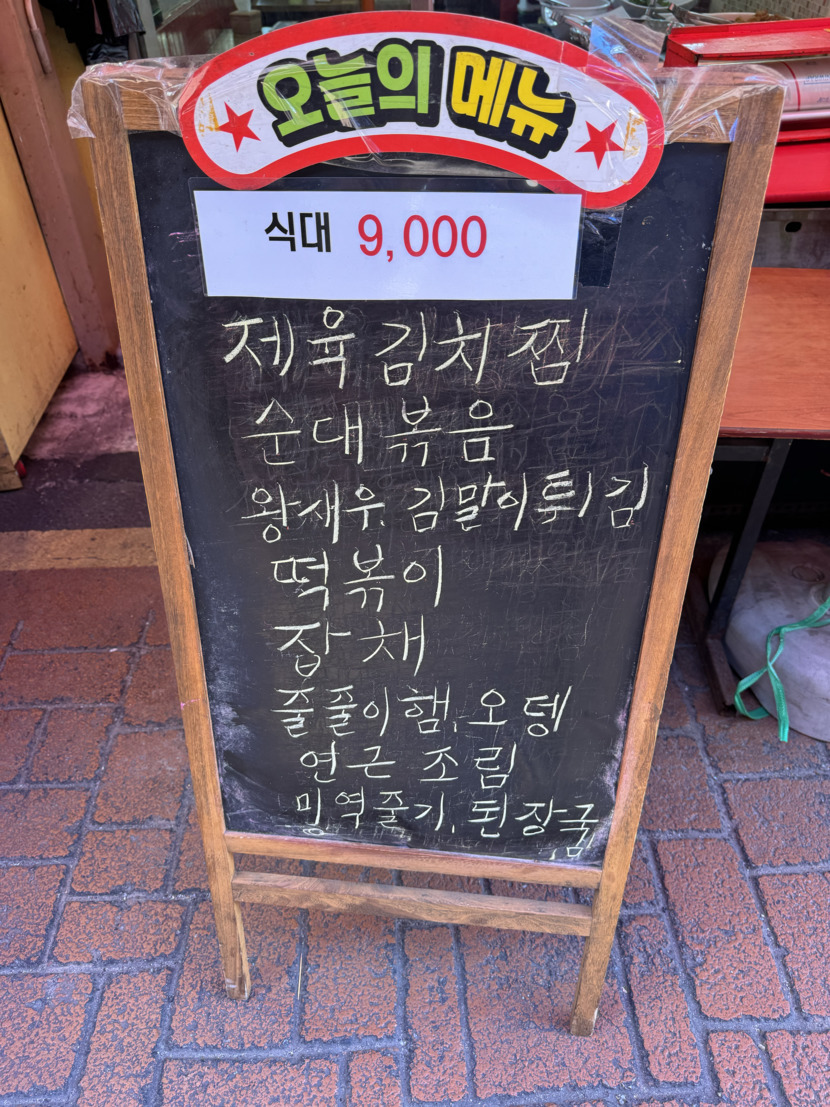 오늘의 메뉴
식대 9,000
제육 김치찜
순대 볶음
왕새우. 김말이튀김
떡볶이
잡채
줄줄이햄. 오뎅
연근 조림
미역줄기. 된장국